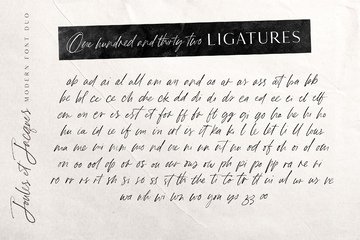 One hundred and thirty two LIGATURES
ab ad ai al all am an and ao ar as ass at ba bb
be bl cc ce ch che ck dd di do dr ea ed ee ei el ell
em en er es est et for ff fr ft gg gi go ha he hi ho
hu ia id ie if im in irl es it ka ki li le let li ll lus
ma me mi mm mo nd ne ni nn nt nu od of oh oi ol om
on oo ood op or os ou our ous ow ph pi po pp ra re ri
ro rr rs rt sh si se ss st th the ti to tr tt ui ul ur us ve
wa wh wi wn wo you ys 33 oo
Joules et Jacques MODERN FONT DUO